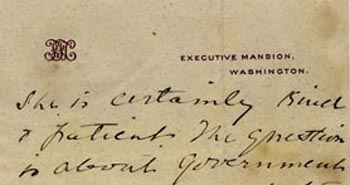 EXECUTIVE MANSION,
WASHINGTON.
She is certainly kind
& patient The question
is about Government